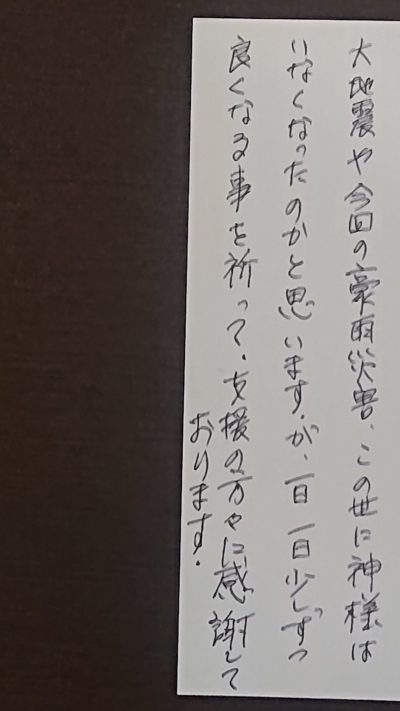 大地震や今回の豪雨災害、この世に神様は
いなくなったのかと思います。が、一日一日少しずつ
良くなる事を祈って。支援の方々に感謝して
おります。